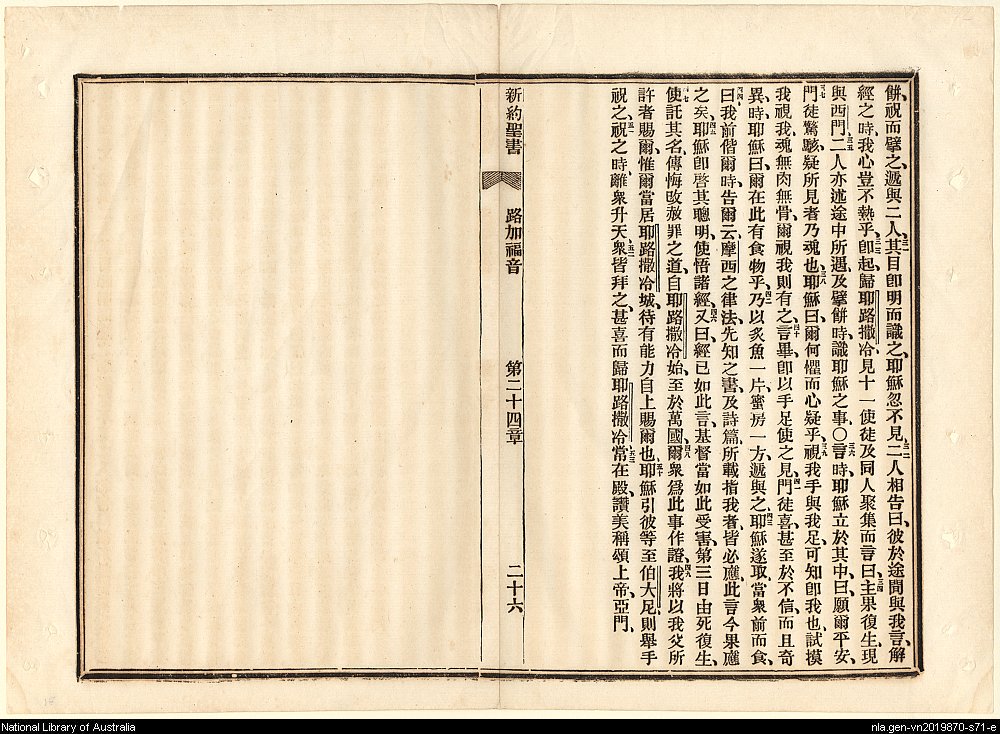 餅祝而擘之、遞與二人、三一其目卽明而識之、耶穌忽不見、三二二人相吿曰、彼於途間與我言、解
經之時、我心豈不熱乎、三三卽起、歸耶路撒冷、見十一使徒、及同人聚集而言曰、三四主果復生、現
與西門、三五二人亦述途中所遇、及擘餅時、識耶穌之事、○三六言時、耶穌立於其中、曰、願爾平安、
三七門徒驚駭、疑所見者乃魂也、三八耶穌曰、爾何懼而心疑乎、三九視我手與我足、可知卽我也、試摸
我視我、魂無肉無骨、爾視我則有之、四十言畢、卽以手足使之見、四一門徒喜甚、至於不信、而且奇
異、時耶穌曰、爾在此有食物乎、四二乃以炙魚一片、蜜房一方、遞與之、四三耶穌遂取、當衆前而食、
四四曰、我前偕爾時、吿爾云、摩西之律法、先知之書、及詩篇、所載指我者、皆必應、此言今果應
之矣、四五耶穌卽啓其聰明、使悟諸經、四六又曰、經已如此言、基督當如此受害、第三日由死復生、
四七使託其名、傳悔改赦罪之道、自耶路撒冷始、至於萬國、四八爾衆爲此事作證、四九我將以我父所
許者賜爾、惟爾當居耶路撒冷城、待有能力自上賜爾也、五十耶穌引彼等至伯大尼、則舉手
祝之、五一祝之時、離衆升天、五二衆皆拜之、甚喜而歸耶路撒冷、五三常在殿、讚美稱頌上帝、亞門、
新約聖書 路加福音 第二十四章 二十六
National Library of Australia
nla.gen-vn2019870-s71-e